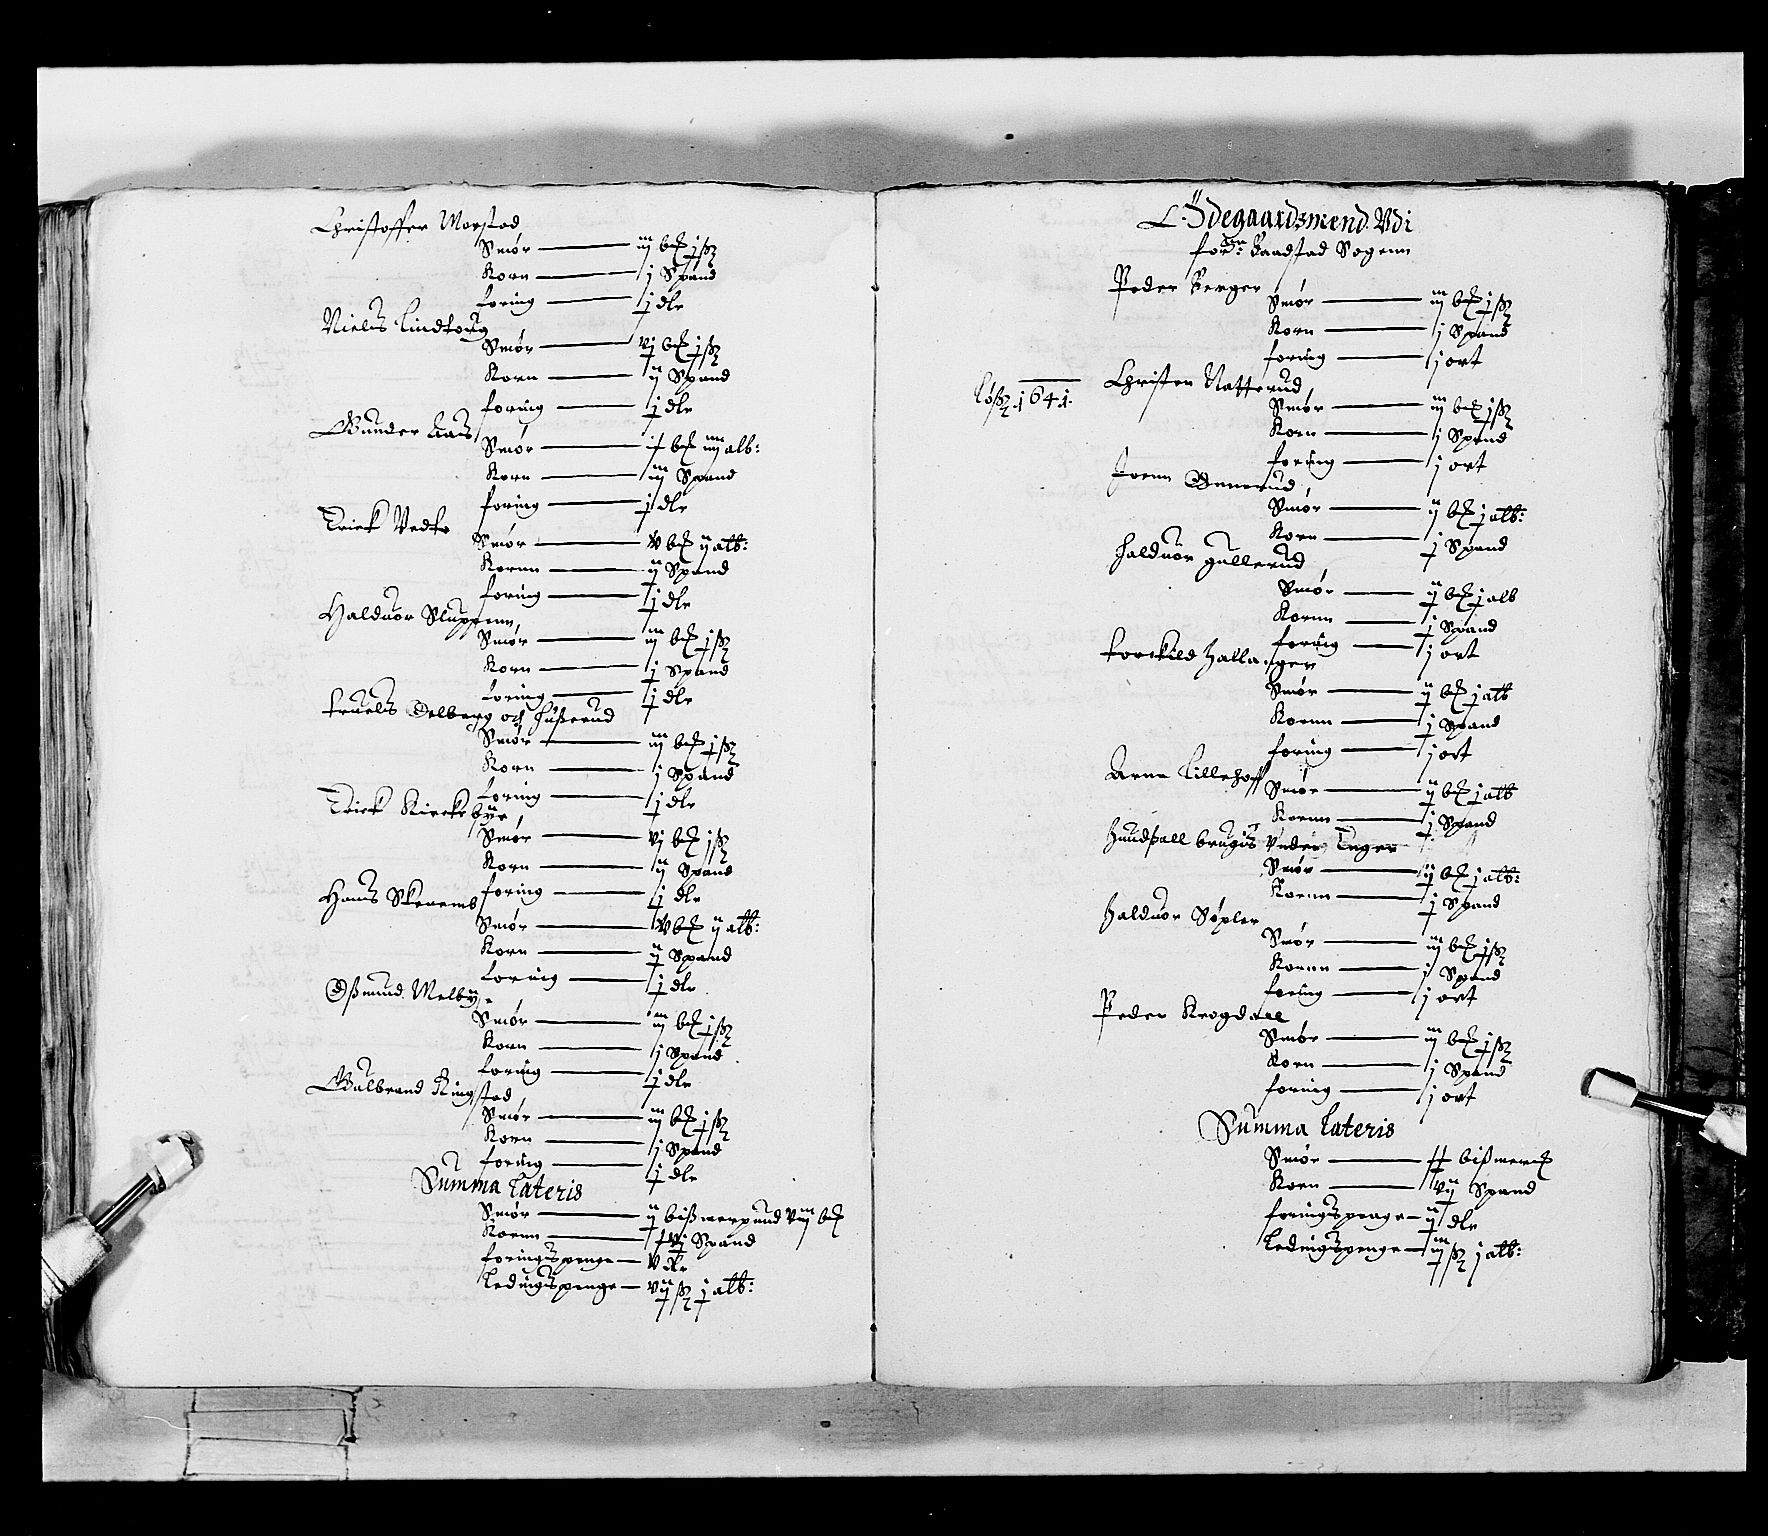 Christoffer Morstad
Smør — iij bℓ j ß
Korn — j Spand
foring — j dlr
Nielß Lindtorig
Smør — vj bℓ j ß
Korn — ij Spand
foring — j dlr
Gunder Aaß
Smør — bℓ iiij alb:
Korn — iij Spand
foring — j dlr
Erick Vedto
Smør — v bℓ ij alb:
Kornn — ij Spand
foring — j dlr
Halduor Sluppenn
Smør — iij bℓ j ß
Korn — j Spand
foring — j dlr
truelß Delberg och Hußerud
Smør — iij bℓ j ß
Korn — j Spand
foring — j dlr
Erick Kirckebye
Smør — vj bℓ j ß
Korn — ij Spand
foring — j dlr
Hans
Smør — v bℓ ij alb:
Korn — ij Spand
foring — j dlr
Oßmund Melbye
Smør — iij bℓ j ß
Korn — j Spand
foring — j dlr
Gulbrand Ringstad
Smør — iij bℓ j ß
Korn — j Spand
foring — j dlr
Summa Lateris
Smør — ij bißmerpund viij bℓ
Kornn — xvj Spand
foringßpenge — v dlr
Ledingßpenge — vij ß j alb:
Ødegaardsmend Vdi
for:ne Baadstad Sogenn
Peder Berger
Smør — iij bℓ j ß
Korn — j Spand
foring — j ort
Løß 1641.
Christen Natterud
Smør — iij bℓ j ß
Korn — j Spand
foring — j ort
Joenn Gunnerud
Smør — ij bℓ j alb:
Korn — j Spand
Halduor Gullerud
Smør — ij bℓ j alb
Kornn — j Spand
foring — j ort
torckild Hallanger
Smør — ij bℓ j alb
Kornn — j Spand
foring — j ort
Arne Lillehoff
Smør — ij bℓ j alb
Kornn — j Spand
Hundßall brugiß Vnder Enger
Smør — ij bℓ j alb:
Kornn — j Spand
Halduor Søpler
Smør — iij bℓ j ß
Kornn — j Spand
foring — j ort
Peder Krogdall
Smør — iij bℓ j ß
Korn — j Spand
foring — j ort
Summa Lateris
Smør — bißmerck
Korn — Spand
foringßpenge — ij dlr
Ledingßpenge — iij ß j alb: